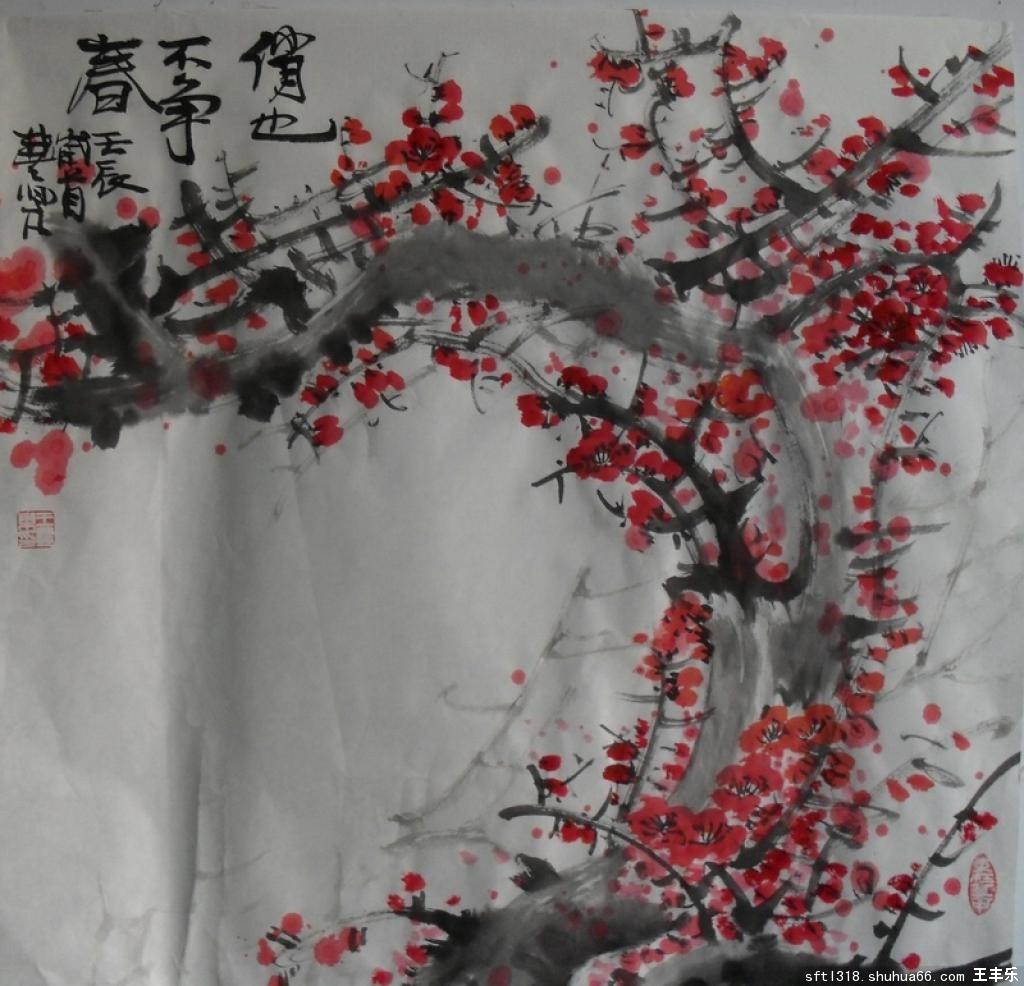 俏也
不争
春
壬辰
sftl318.shuhua66.com 王丰乐